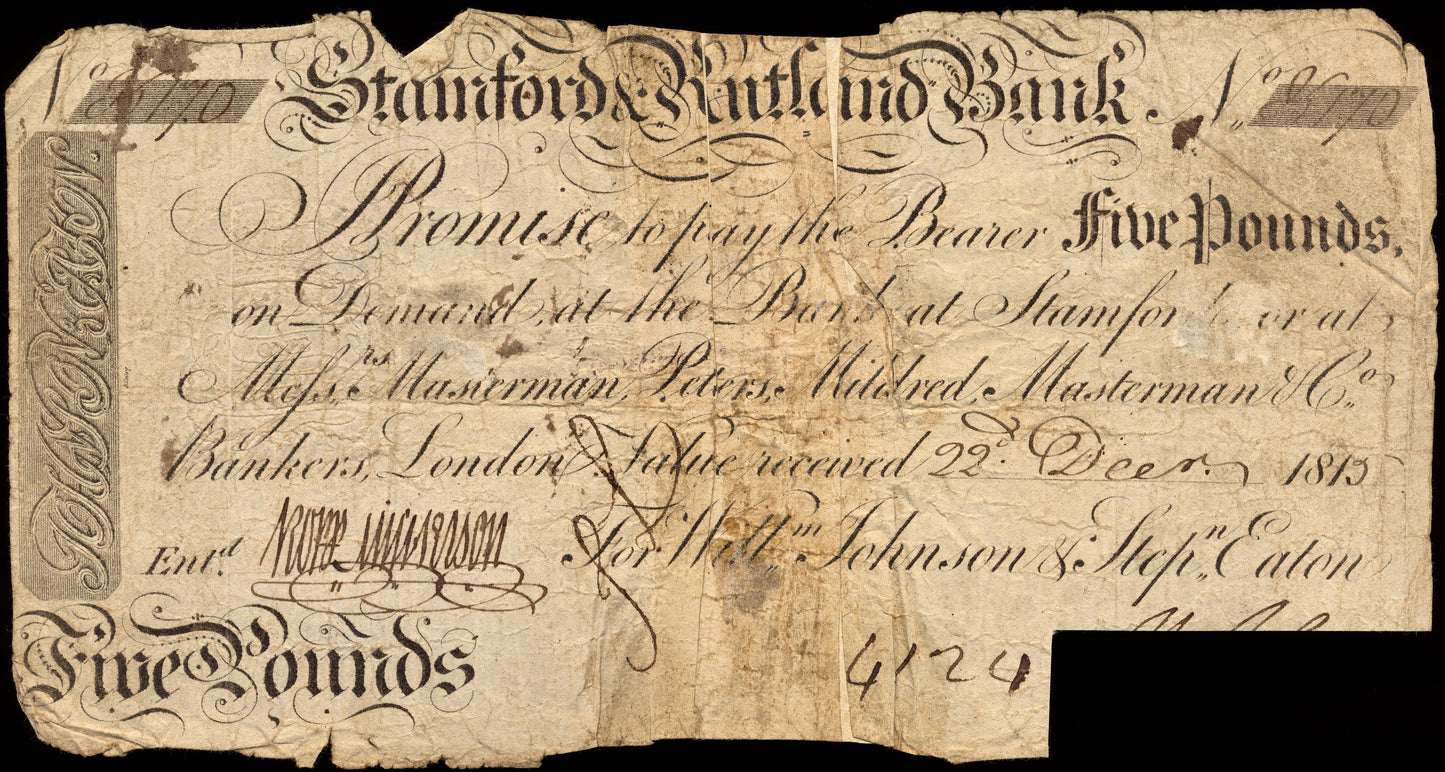 No. 8670 Stamford & Rutland Bank No. 8670
I Promise to pay the Bearer Five Pounds.
on Demand, at the Bank at Stamford or at
Messrs. Masterman, Peters, Mildred, Masterman & Co.
Bankers, London. Value received 22d. Decr. 1815
Entd. For Willm. Johnson & Stepn. Eaton
Five Pounds
4124